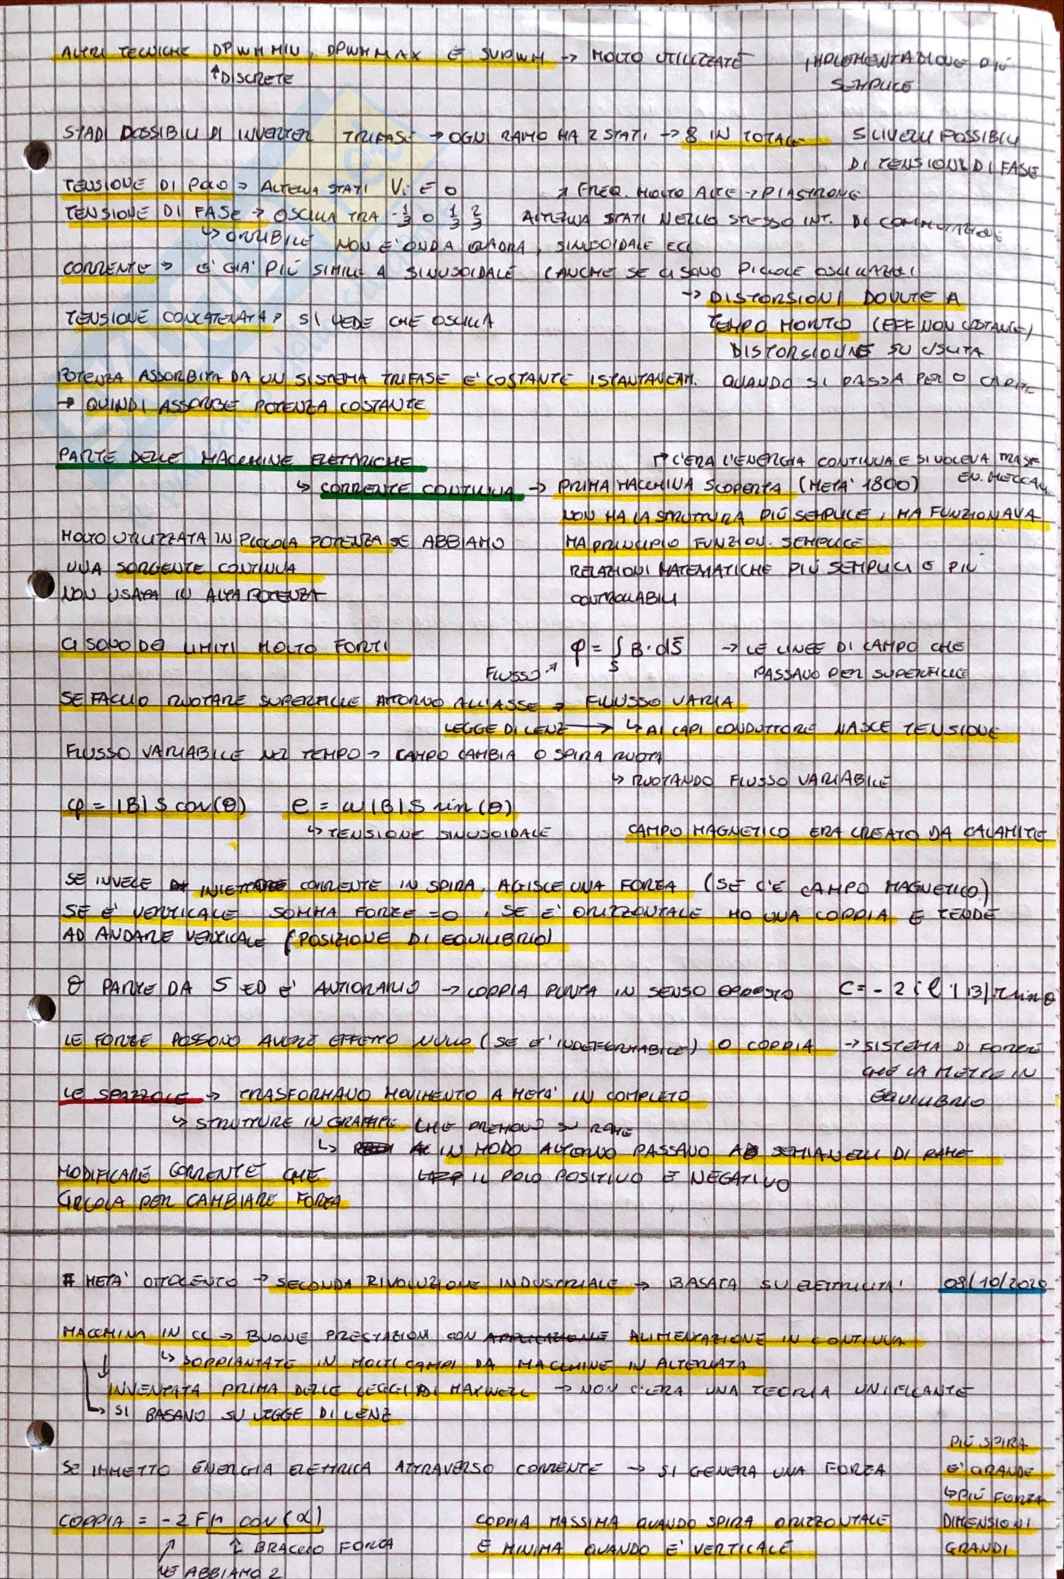 ALTRI TECNICHE DPWM MIN, DPWM MAX E SVPWM → MOLTO UTILIZZATE IMPLEMENTAZIONE PIÙ
↑DISCRETE SEMPLICE
STADI POSSIBILI DI INVERTER TRIFASE → OGNI RAMO HA 2 STATI → 8 IN TOTALE 5 LIVELLI POSSIBILI
DI TENSIONE DI FASE
TENSIONE DI POLO → ALTERNA STATI Vi E 0 ↗ FREQ. MOLTO ALTE → PIASTRONE
TENSIONE DI FASE → OSCILLA TRA -1/3 0 1/3 2/3 ALTERNA STATI NELLO STESSO INT. DI COMMUTAZIONE
↳ ORRIBILE NON E' ONDA QUADRA, SINUSOIDALE ECC
CORRENTE → E' GIA' PIÙ SIMILE A SINUSOIDALE (ANCHE SE CI SONO PICCOLE OSCILLAZIONI
→ DISTORSIONI DOVUTE A
TENSIONE CONCATENATA → SI VEDE CHE OSCILLA TEMPO MORTO (EFF NON COSTANTE)
DISTORSIONE SU USCITA
POTENZA ASSORBITA DA UN SISTEMA TRIFASE E' COSTANTE ISTANTANEAM. QUANDO SI PASSA PER 0
→ QUINDI ASSORBE POTENZA COSTANTE
PARTE DELLE MACCHINE ELETTRICHE ↱ C'ERA L'ENERGIA CONTINUA E SI VOLEVA TRASF
↳ CORRENTE CONTINUA → PRIMA MACCHINA SCOPERTA (META' 1800) EN. MECCAN.
NON HA LA STRUTTURA PIÙ SEMPLICE, MA FUNZIONAVA
MOLTO UTILIZZATA IN PICCOLA POTENZA SE ABBIAMO MA PRINCIPIO FUNZION. SEMPLICE
UNA SORGENTE CONTINUA RELAZIONI MATEMATICHE PIÙ SEMPLICI E PIÙ
NON USATA IN ALTA POTENZA CONTROLLABILI
CI SONO DEI LIMITI MOLTO FORTI φ = ∫ B · dS → LE LINEE DI CAMPO CHE
FLUSSO ↗ S PASSANO PER SUPERFICIE
SE FACCIO RUOTARE SUPERFICIE ATTORNO ALL'ASSE → FLUSSO VARIA
LEGGE DI LENZ → ↳ AI CAPI CONDUTTORE NASCE TENSIONE
FLUSSO VARIABILE NEL TEMPO → CAMPO CAMBIA O SPIRA RUOTA
↳ RUOTANDO FLUSSO VARIABILE
φ = |B| S cos(θ) e = ω|B| S sin(θ)
↳ TENSIONE SINUSOIDALE CAMPO MAGNETICO ERA CREATO DA CALAMITE
SE INVECE CORRENTE IN SPIRA, AGISCE UNA FORZA (SE C'E' CAMPO MAGNETICO)
SE E' VERTICALE SOMMA FORZE =0, SE E' ORIZZONTALE HO UNA COPPIA E TENDE
AD ANDARE VERTICALE (POSIZIONE DI EQUILIBRIO)
θ PARTE DA S ED E' ANTIORARIO → COPPIA PUNTA IN SENSO OPPOSTO C = -2 i l |B| r sin θ
LE FORZE POSSONO AVERE EFFETTO NULLO (SE E' INDEFORMABILE) O COPPIA → SISTEMA DI FORZE
CHE LA METTE IN
LE SPAZZOLE → TRASFORMANO MOVIMENTO A META' IN COMPLETO EQUILIBRIO
↳ STRUTTURE IN GRAFITE CHE PREMONO SU RAME
↳ IN MODO ALTERNO PASSANO SEMIANELLI DI RAME
MODIFICARE CORRENTE CHE IL POLO POSITIVO E NEGATIVO
CIRCOLA PER CAMBIARE FORZA
# META' OTTOCENTO → SECONDA RIVOLUZIONE INDUSTRIALE → BASATA SU ELETTRICITA' 08/10/2020
MACCHINA IN CC → BUONE PRESTAZIONI CON ALIMENTAZIONE IN CONTINUA
↳ SOPPIANTATE IN MOLTI CAMPI DA MACCHINE IN ALTERNATA
INVENTATA PRIMA DELLE LEGGI DI MAXWELL → NON C'ERA UNA TEORIA UNIFICANTE
↳ SI BASANO SU LEGGE DI LENZ
PIÙ SPIRA
SE IMMETTO ENERGIA ELETTRICA ATTRAVERSO CORRENTE → SI GENERA UNA FORZA E' GRANDE
↳ PIÙ FORZA
COPPIA = -2 F r cos(α) COPPIA MASSIMA QUANDO SPIRA ORIZZONTALE DIMENSIONI
↑ BRACCIO FORZA E MINIMA QUANDO E' VERTICALE GRANDI
NE ABBIAMO 2